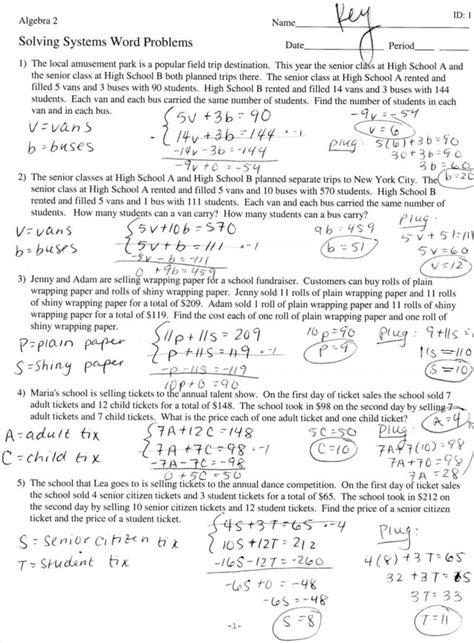 Algebra 2
ID: 1
Name Key
Solving Systems Word Problems
Date Period
1) The local amusement park is a popular field trip destination. This year the senior class at High School A and
the senior class at High School B both planned trips there. The senior class at High School A rented and
filled 5 vans and 3 buses with 90 students. High School B rented and filled 14 vans and 3 buses with 144
students. Each van and each bus carried the same number of students. Find the number of students in each
van and in each bus.
V=vans
b=buses
5v + 3b = 90
14v + 3b = 144 · -1
-14v - 3b = -144
-9v + 0 = -54
-9v = -54
v = 6
plug: 5(6)+3b=90
30+3b=90
3b=60
b=20
2) The senior classes at High School A and High School B planned separate trips to New York City. The
senior class at High School A rented and filled 5 vans and 10 buses with 570 students. High School B
rented and filled 5 vans and 1 bus with 111 students. Each van and each bus carried the same number of
students. How many students can a van carry? How many students can a bus carry?
V=vans
b=buses
5v+10b=570
5v+b=111 · -1
-5v-b=-111
0+9b=459
9b=459
b=51
Plug:
5v+51=111
5v=60
v=12
3) Jenny and Adam are selling wrapping paper for a school fundraiser. Customers can buy rolls of plain
wrapping paper and rolls of shiny wrapping paper. Jenny sold 11 rolls of plain wrapping paper and 11 rolls
of shiny wrapping paper for a total of $209. Adam sold 1 roll of plain wrapping paper and 11 rolls of shiny
wrapping paper for a total of $119. Find the cost each of one roll of plain wrapping paper and one roll of
shiny wrapping paper.
P=plain paper
S=shiny paper
11p + 11s = 209
p + 11s = 119 · -1
-p - 11s = -119
10p + 0 = 90
10p=90
p=9
Plug: 9+11s=
11s=110
s=10
4) Maria's school is selling tickets to the annual talent show. On the first day of ticket sales the school sold 7
adult tickets and 12 child tickets for a total of $148. The school took in $98 on the second day by selling 7
adult tickets and 7 child tickets. What is the price each of one adult ticket and one child ticket?
A=adult tix
C=child tix
7A+12C=148
7A+7C=98 · -1
-7A-7C=-98
0+5C=50
5C=50
C=10
Plug:
7A+7(10)=98
7A+70=98
7A=28
A=4
5) The school that Lea goes to is selling tickets to the annual dance competition. On the first day of ticket sales
the school sold 4 senior citizen tickets and 3 student tickets for a total of $65. The school took in $212 on
the second day by selling 10 senior citizen tickets and 12 student tickets. Find the price of a senior citizen
ticket and the price of a student ticket.
S=senior citizen tix
T=student tix
4S+3T=65 · -4
10S+12T=212
-16S-12T=-260
-6S+0=-48
-6S=-48
S=8
Plug:
4(8)+3T=65
32+3T=65
3T=33
T=11
-1-